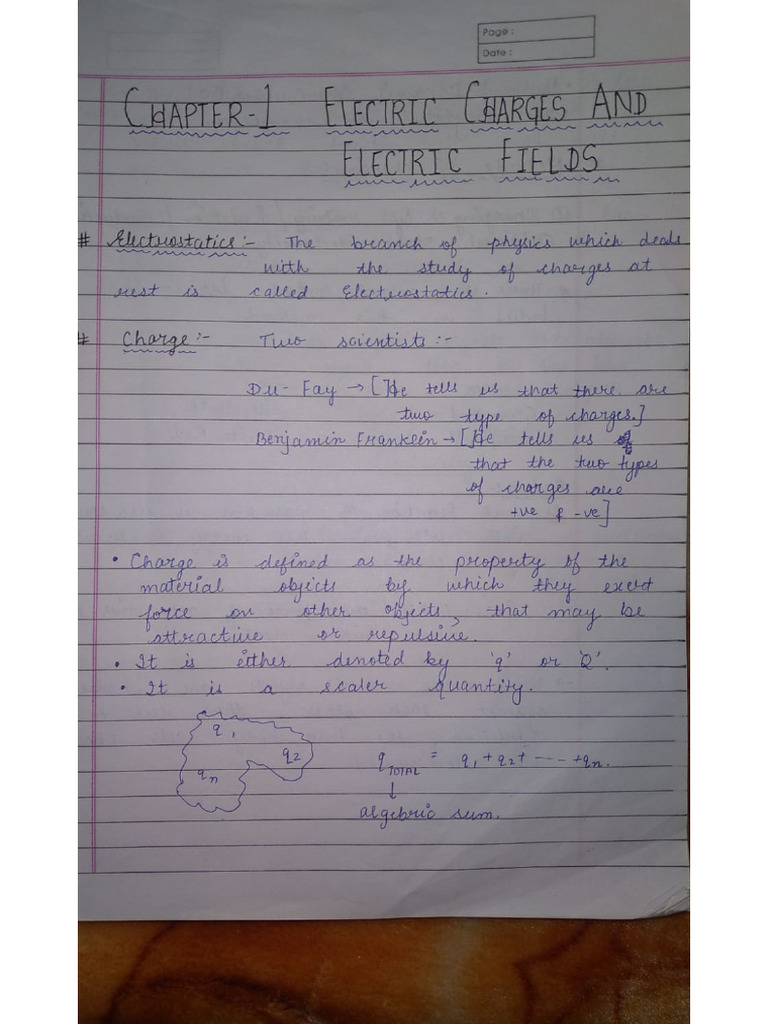 Page :
Date :
CHAPTER-1 ELECTRIC CHARGES AND
ELECTRIC FIELDS
# Electrostatics :- The branch of physics which deals
with the study of charges at
rest is called Electrostatics.
# Charge :- Two scientists :-
Du-Fay → [He tells us that there are
two type of charges.]
Benjamin Franklein → [He tells us
that the two types
of charges are
+ve & -ve]
• Charge is defined as the property of the
material objects by which they exert
force on other objects, that may be
attractive or repulsive.
• It is either denoted by 'q' or 'Q'.
• It is a scaler quantity.
q1
q2
qn
qTOTAL = q1 + q2 + ---- + qn.
↓
algebric sum.